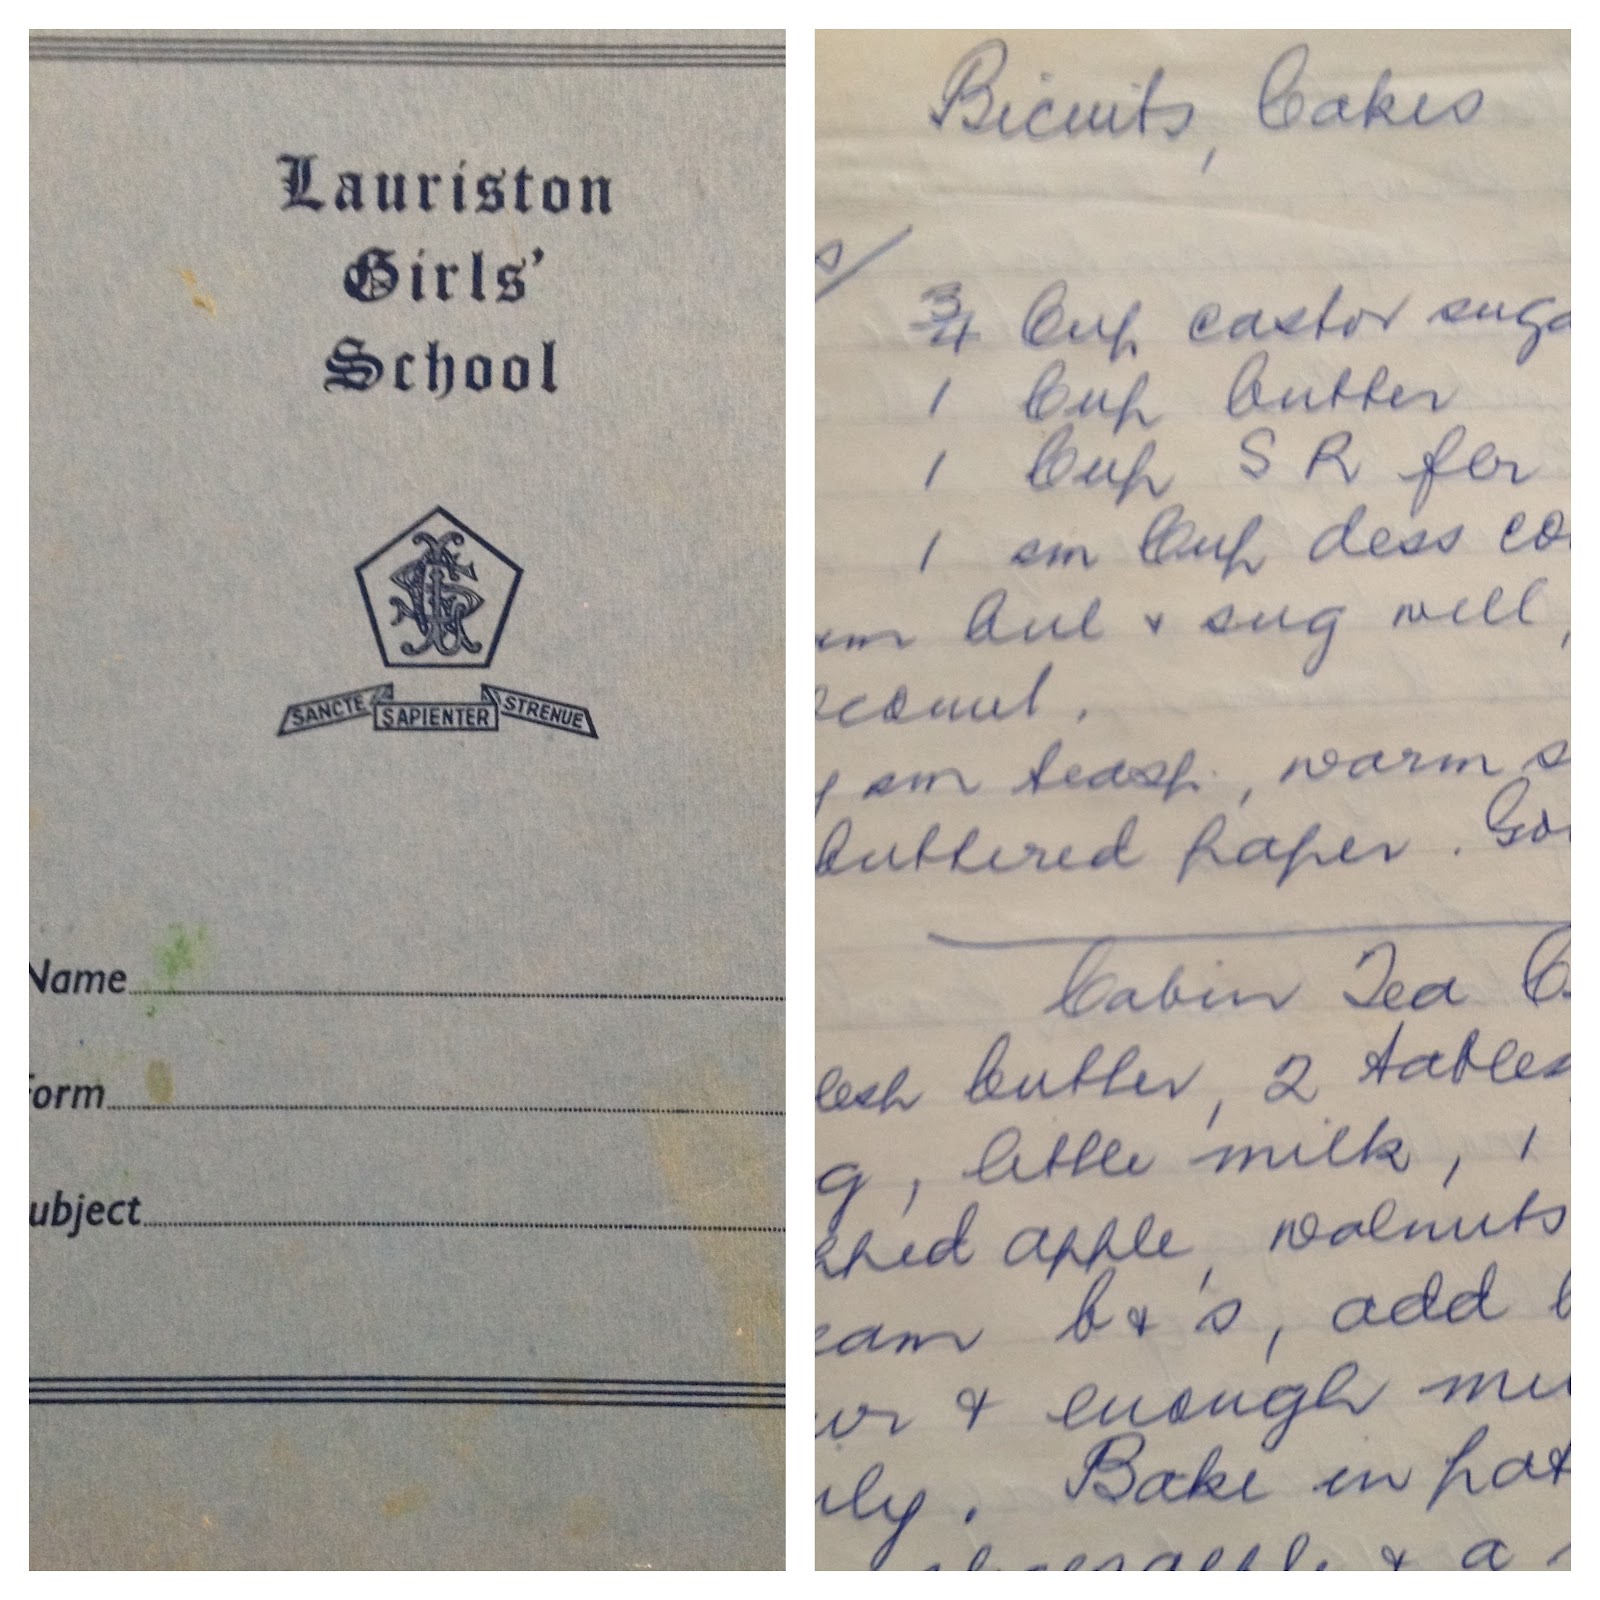 Lauriston
Girls'
School
SANCTE SAPIENTER STRENUE
Name
Form
ubject
Bicuits, Cakes
3/4 Cup castor suga
1 Cup butter
1 Cup S R flr
1 sm Cup dess co
but & sug well,
oconut.
sm teasp., warm s
buttered paper. Goo
Cabin Tea C
butter, 2 tables
g, little milk, 1
pped apple, walnuts
eam b & s, add
& enough
Bake in pat
& a